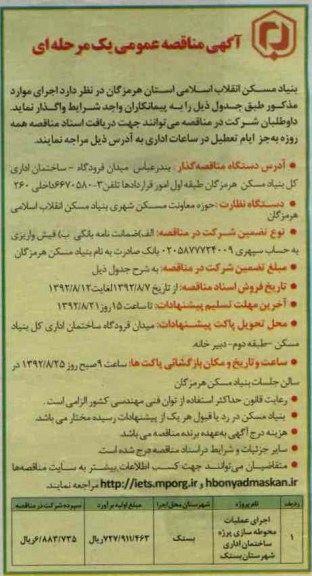 آگهی مناقصه عمومی یک مرحله ای
بنیاد مسکن انقلاب اسلامی استان هرمزگان در نظر دارد اجرای موارد
مذکور طبق جدول ذیل را به پیمانکاران واجد شرایط واگذار نماید.
داوطلبان شرکت در مناقصه می توانند جهت دریافت اسناد مناقصه همه
روزه به جز ایام تعطیل در ساعات اداری به آدرس ذیل مراجعه نمایند.
• آدرس دستگاه مناقصه گذار: بندرعباس میدان فرودگاه - ساختمان اداری
کل بنیاد مسکن هرمزگان طبقه اول امور قراردادها تلفن ۳-۶۶۷۰۵۸۰ داخلی ۲۶۰
• دستگاه نظارت: حوزه معاونت مسکن شهری بنیاد مسکن انقلاب اسلامی
هرمزگان
• نوع تضمین شرکت در مناقصه: الف) ضمانت نامه بانکی ب) فیش واریزی
به حساب سپهری ۰۲۰۵۸۷۷۷۲۴۰۰۹ بانک صادرات به نام بنیاد مسکن هرمزگان
• مبلغ تضمین شرکت در مناقصه: به شرح جدول ذیل
• تاریخ فروش اسناد مناقصه: از تاریخ ۱۳۹۲/۸/۷ لغایت ۱۳۹۲/۸/۱۲
• آخرین مهلت تسلیم پیشنهادات: تا ساعت ۱۵ روز ۱۳۹۲/۸/۲۱
• محل تحویل پاکت پیشنهادات: میدان فرودگاه ساختمان اداری کل بنیاد
مسکن - طبقه دوم - دبیر خانه
• ساعت و تاریخ و مکان بازگشائی پاکت ها: ساعت ۹ صبح روز ۱۳۹۲/۸/۲۵ در
سالن جلسات بنیاد مسکن هرمزگان
• رعایت قانون حداکثر استفاده از توان فنی مهندسی کشور الزامی است.
• بنیاد مسکن در رد یا قبول هر یک از پیشنهادات رسیده مختار می باشد.
• هزینه درج آگهی به عهده برنده مناقصه می باشد
• سایر جزئیات و شرایط در اسناد مناقصه درج شده است.
• متقاضیان می توانند جهت کسب اطلاعات بیشتر به سایت مناقصه ها
http://iets.mporg.ir و hbonyadmaskan.ir مراجعه نمایند.
ردیف نام پروژه شهرستان محل اجرا مبلغ اولیه برآورد سپرده شرکت در مناقصه
۱ اجرای عملیات محوطه سازی پرژه ساختمان اداری شهرستان بستک بستک ۷۲۷/۹۱۱/۴۶۳ ریال ۶/۸۸۳/۷۳۵ ریال